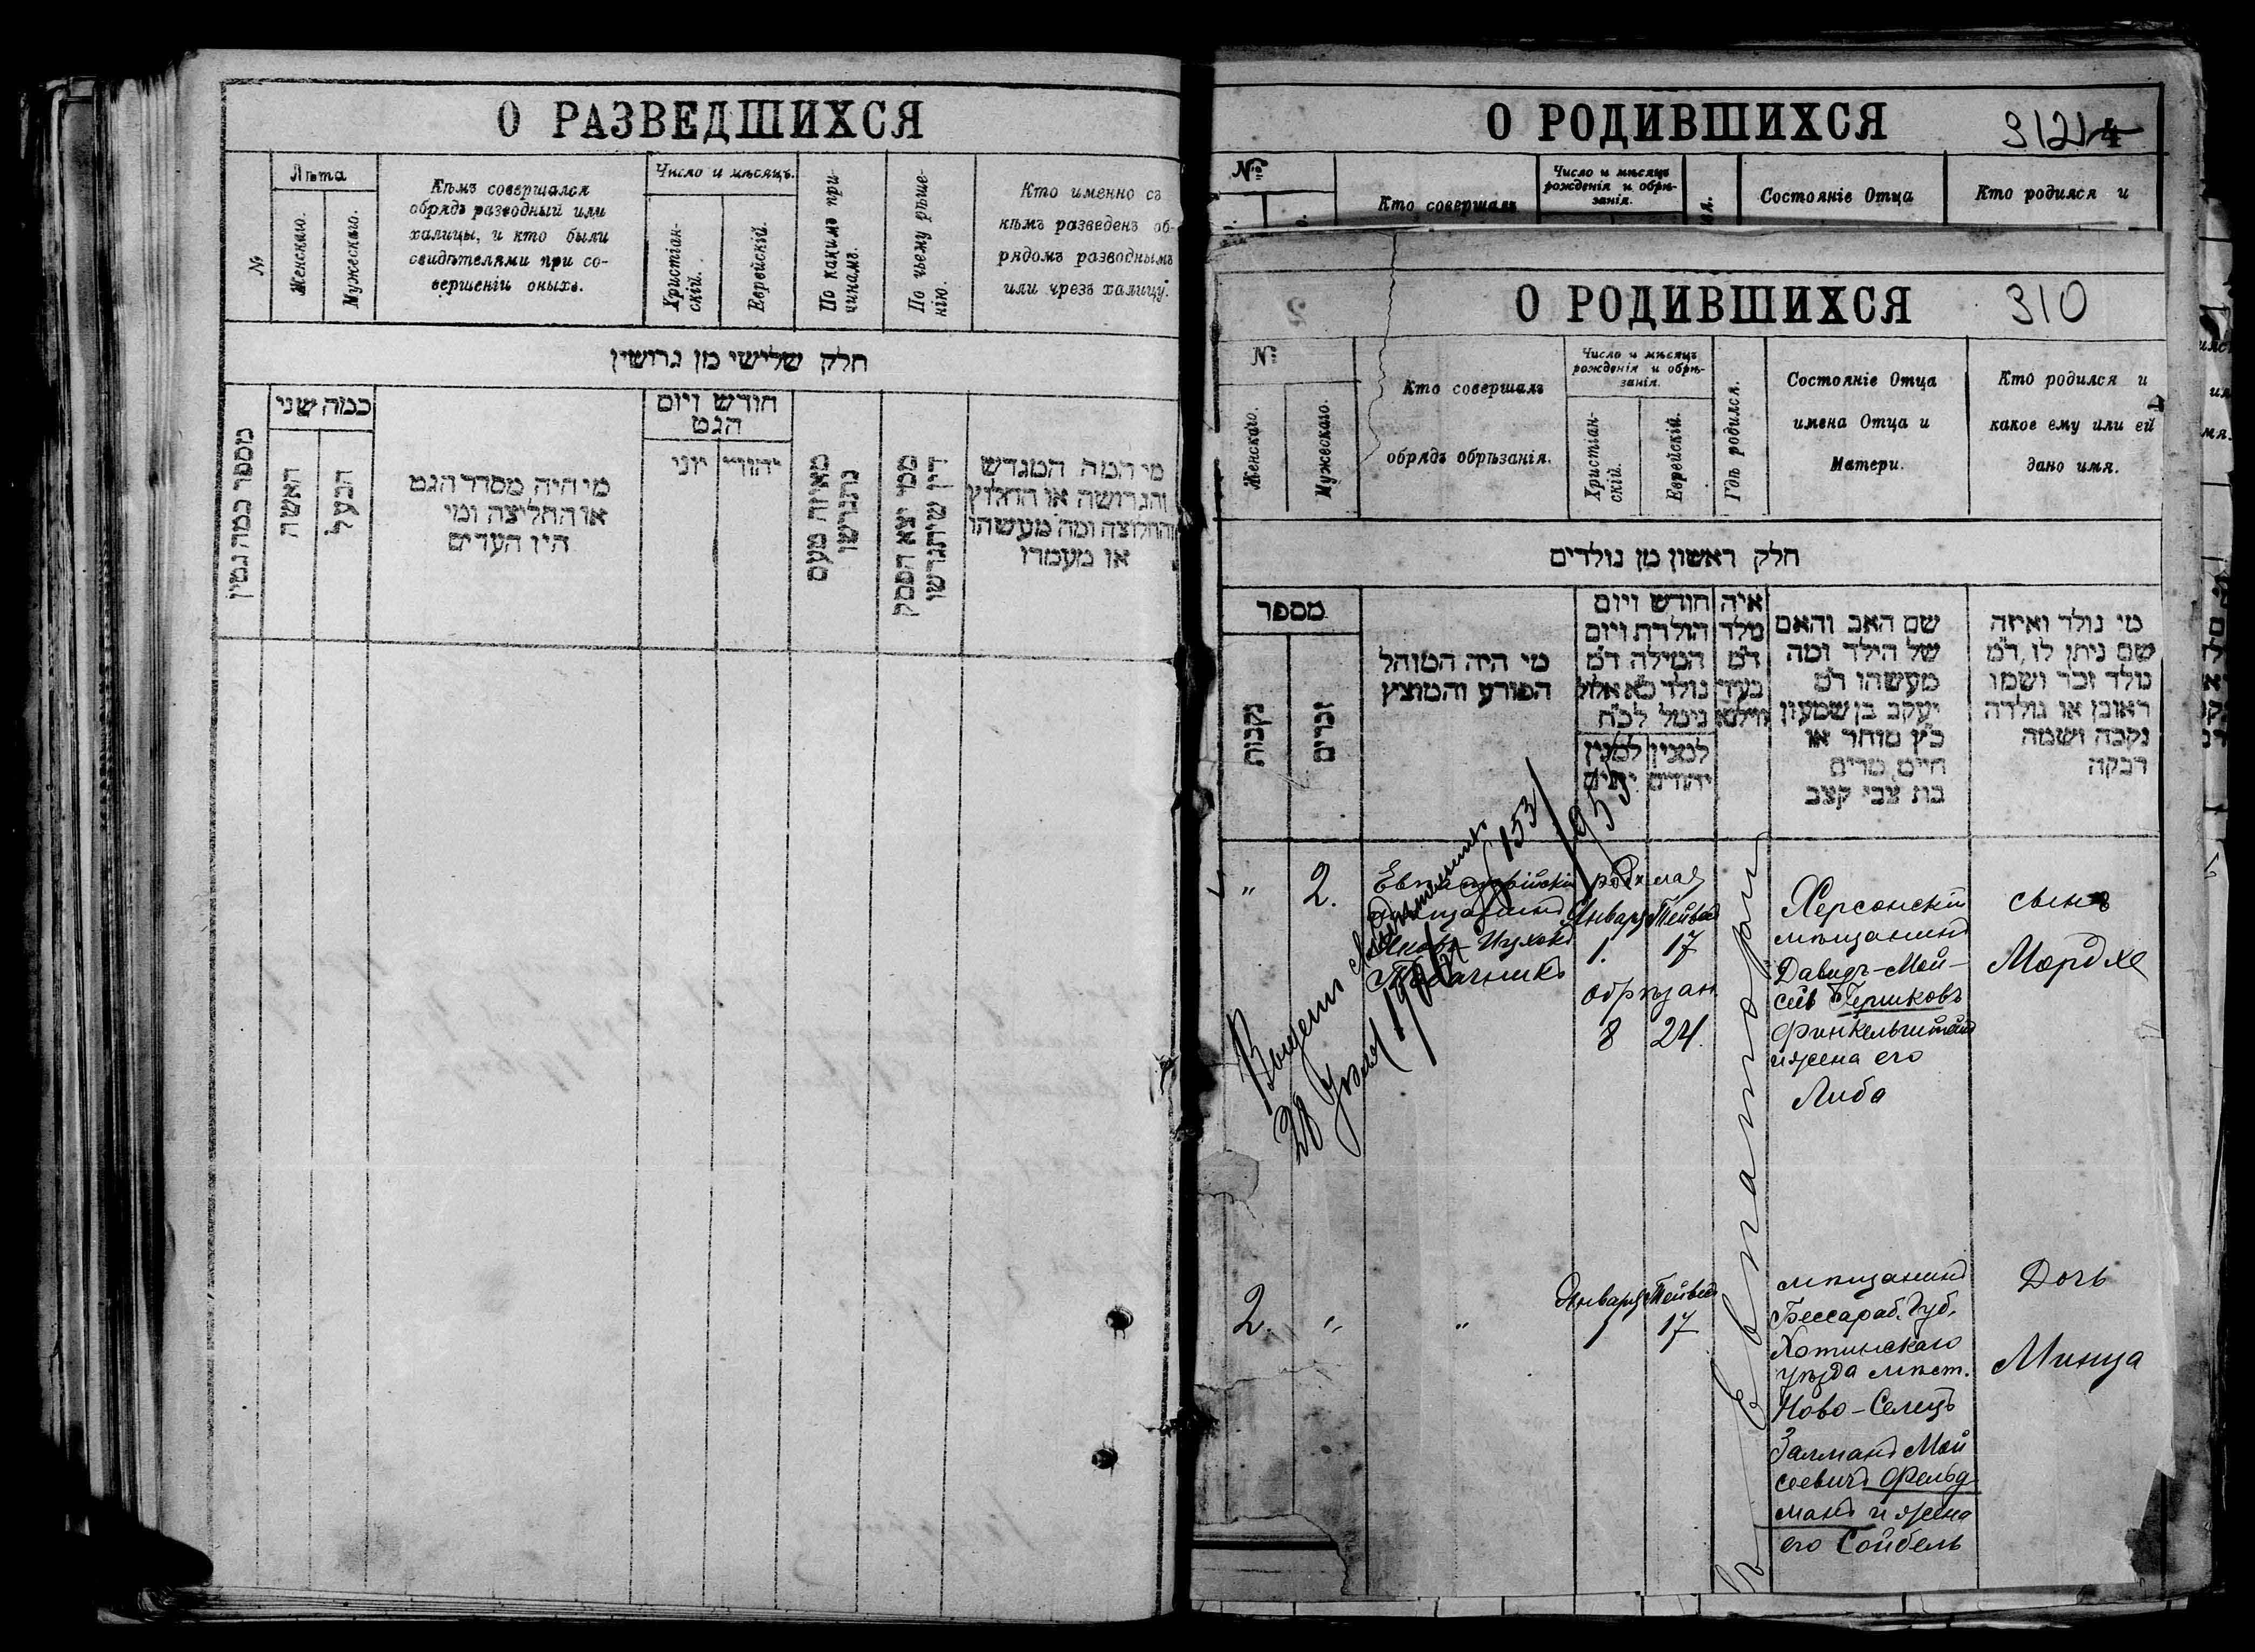 О РАЗВЕДШИХСЯ
№
Лѣта
Женскаго.
Мужескаго.
Кѣмъ совершался
обрядъ разводный или
халицы, и кто были
свидѣтелями при со-
вершеніи оныхъ.
Число и мѣсяцъ.
Христіан-
скій.
Еврейскій.
По какимъ при-
чинамъ.
По чьему рѣше-
нію.
Кто именно съ
кѣмъ разведенъ об-
рядомъ разводнымъ
или чрезъ халицу.
חלק שלישי מן גרושין
מספר כמה גטין
כמה שני
האשה
הבעל
מי היה מסדר הגט
או החליצה ומי
היו העדים
חודש ויום
הגט
יוני
יהודי
מאיזה טעם
נתגרשו
ממי יצא הפסק
דין שיתגרשו
מי המה המגרש
והגרושה או החלוץ
והחלוצה ומה מעשהו
או מעמדו
О РОДИВШИХСЯ
312
4
№
Кто совершалъ
Число и мѣсяцъ
рожденія и обрѣ-
занія.
Состояніе Отца
Кто родился и
О РОДИВШИХСЯ
310
№
Женскаго.
Мужескаго.
Кто совершалъ
обрядъ обрѣзанія.
Число и мѣсяцъ
рожденія и обрѣ-
занія.
Христіан-
скій.
Еврейскій.
Гдѣ родился.
Состояніе Отца
имена Отца и
Матери.
Кто родился и
какое ему или ей
дано имя.
חלק ראשון מן נולדים
מספר
נקבות
זכרים
מי היה המוהל
הפורע והמוצץ
חודש ויום
הולדת ויום
המילה ד״מ
נולד כ״א אלול
נימל לכ״ח
למנין
יונים
למנין
יהודים
איה
נולד
ד״מ
בעיר
ווילנא
שם האב והאם
של הילד ומה
מעשהו ד״מ
יעקב בן שמעון
כ״ץ סוחר או
חיים, מרים
בת צבי קצב
מי נולד ואיזה
שם ניתן לו, ד״מ
נולד זכר ושמו
ראובן או נולדה
נקבה ושמה
רבקה
"
2.
Евпаторійскій
мѣщанинъ
Табачникъ
Январь Тейвес
1. 17
обрѣзан
8 24.
Херсонскій
мѣщанинъ
Давидъ-Мой-
сей Гершковъ
Финкельштейнъ
и жена его
Либа
сынъ
Мордхе
28 1904
Евпаторіи
2.
"
"
Январь Тейвес
1 17
мѣщанинъ
Бессараб. Губ.
Хотинскаго
уѣзда мѣст.
Ново-Селицъ
Залманъ Мой
сеевичъ Фельд-
манъ и жена
его Сойбель
Дочь
Минца